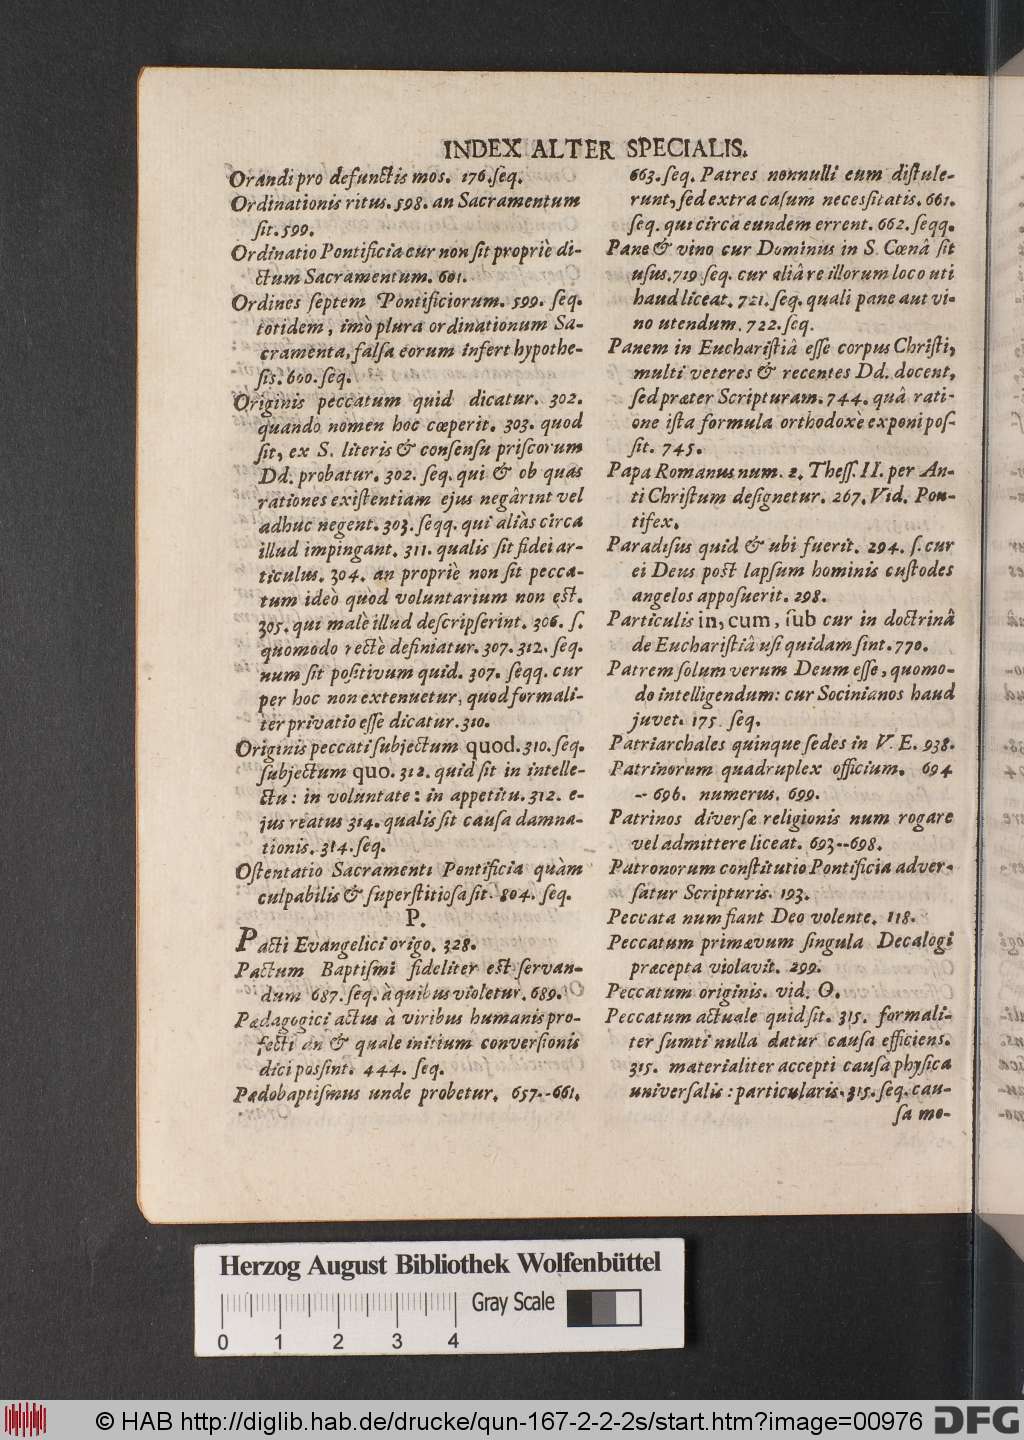 INDEX ALTER SPECIALIS.
Orandi pro defunctis mos. 176. ſeq.
Ordinationis ritus. 598. an Sacramentum
ſit. 599.
Ordinatio Pontificia cur non ſit propriè di-
ctum Sacramentum. 601.
Ordines ſeptem Pontificiorum. 599. ſeq.
totidem, imò plura ordinationum Sa-
cramenta, falſa eorum infert hypothe-
ſis. 600. ſeq.
Originis peccatum quid dicatur. 302.
quando nomen hoc cœperit. 303. quod
ſit, ex S. literis & conſenſu priſcorum
Dd. probatur. 302. ſeq. qui & ob quas
rationes exiſtentiam ejus negârint vel
adhuc negent. 303. ſeqq. qui aliàs circa
illud impingant. 311. qualis ſit fidei ar-
ticulus. 304. an propriè non ſit pecca-
tum ideò quod voluntarium non eſt.
305. qui malè illud deſcripſerint. 306. ſ.
quomodo rectè definiatur. 307. 312. ſeq.
num ſit poſitivum quid. 307. ſeqq. cur
per hoc non extenuetur, quod formali-
ter privatio eſſe dicatur. 310.
Originis peccati ſubjectum quod. 310. ſeq.
ſubjectum quo. 312. quid ſit in intelle-
ctu: in voluntate: in appetitu. 312. e-
jus reatus 314. qualis ſit cauſa damna-
tionis. 314. ſeq.
Oſtentatio Sacramenti Pontificia quàm
culpabilis & ſuperſtitioſa ſit. 804. ſeq.
P.
Pacti Evangelici origo. 328.
Pactum Baptiſmi fideliter eſt ſervan-
dum 687. ſeq. à quibus violetur. 689.
Pædagogici actus à viribus humanis pro-
fecti an & quale initium converſionis
dici poſſint. 444. ſeq.
Pædobaptiſmus unde probetur. 657.--661.
663. ſeq. Patres nonnulli eum diſtule-
runt, ſed extra caſum neceſſitatis. 661.
ſeq. qui circa eundem errent. 662. ſeqq.
Pane & vino cur Dominus in S. Cœnâ ſit
uſus. 719 ſeq. cur aliâ re illorum loco uti
haud liceat. 721. ſeq. quali pane aut vi-
no utendum. 722. ſeq.
Panem in Euchariſtiâ eſſe corpus Chriſti,
multi veteres & recentes Dd. docent,
ſed præter Scripturam. 744. quâ rati-
one iſta formula orthodoxè exponi poſ-
ſit. 745.
Papa Romanus num. 2. Theſſ. II. per An-
ti Chriſtum deſignetur. 267. Vid. Pon-
tifex.
Paradiſus quid & ubi fuerit. 294. ſ. cur
ei Deus poſt lapſum hominis cuſtodes
angelos appoſuerit. 298.
Particulis in, cum, ſub cur in doctrinâ
de Euchariſtiâ uſi quidam ſint. 770.
Patrem ſolum verum Deum eſſe, quomo-
do intelligendum: cur Socinianos haud
juvet. 175. ſeq.
Patriarchales quinque ſedes in V. E. 938.
Patrinorum quadruplex officium. 694
-- 696. numerus. 699.
Patrinos diverſæ religionis num rogare
vel admittere liceat. 693--698.
Patronorum conſtitutio Pontificia adver-
ſatur Scripturis. 193.
Peccata num fiant Deo volente. 118.
Peccatum primævum ſingula Decalogi
præcepta violavit. 299.
Peccatum originis. vid. O.
Peccatum actuale quid ſit. 315. formali-
ter ſumti nulla datur cauſa efficiens.
315. materialiter accepti cauſa phyſica
univerſalis: particularis. 315. ſeq. cau-
ſa mo-
Herzog August Bibliothek Wolfenbüttel
0 1 2 3 4
Gray Scale
© HAB http://diglib.hab.de/drucke/qun-167-2-2-2s/start.htm?image=00976
DFG